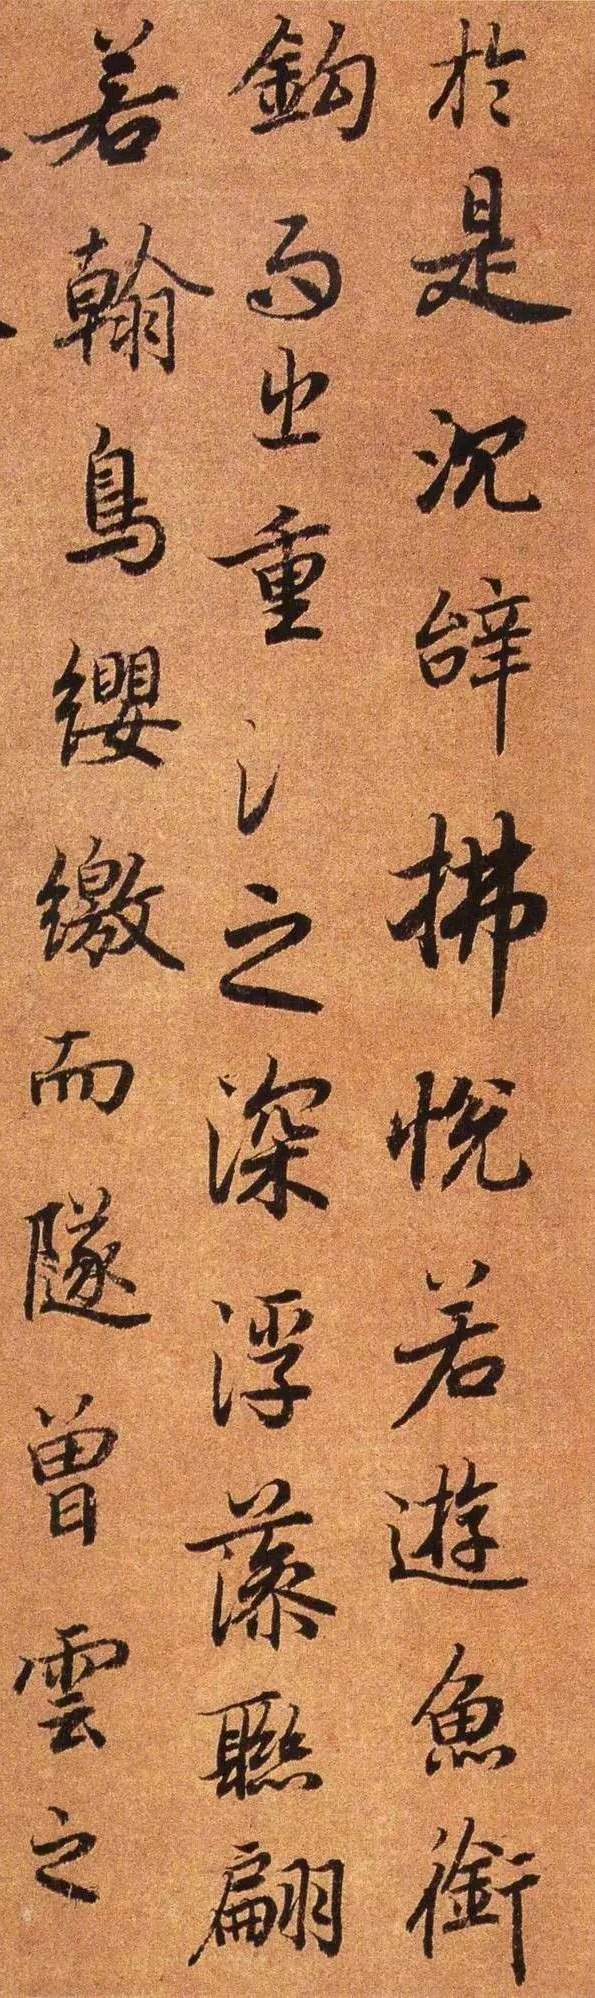 於是沉辝拂悅若遊魚銜
鈎而出重氵之深浮藻聯翩
若翰鳥纓繳而隧曾雲之